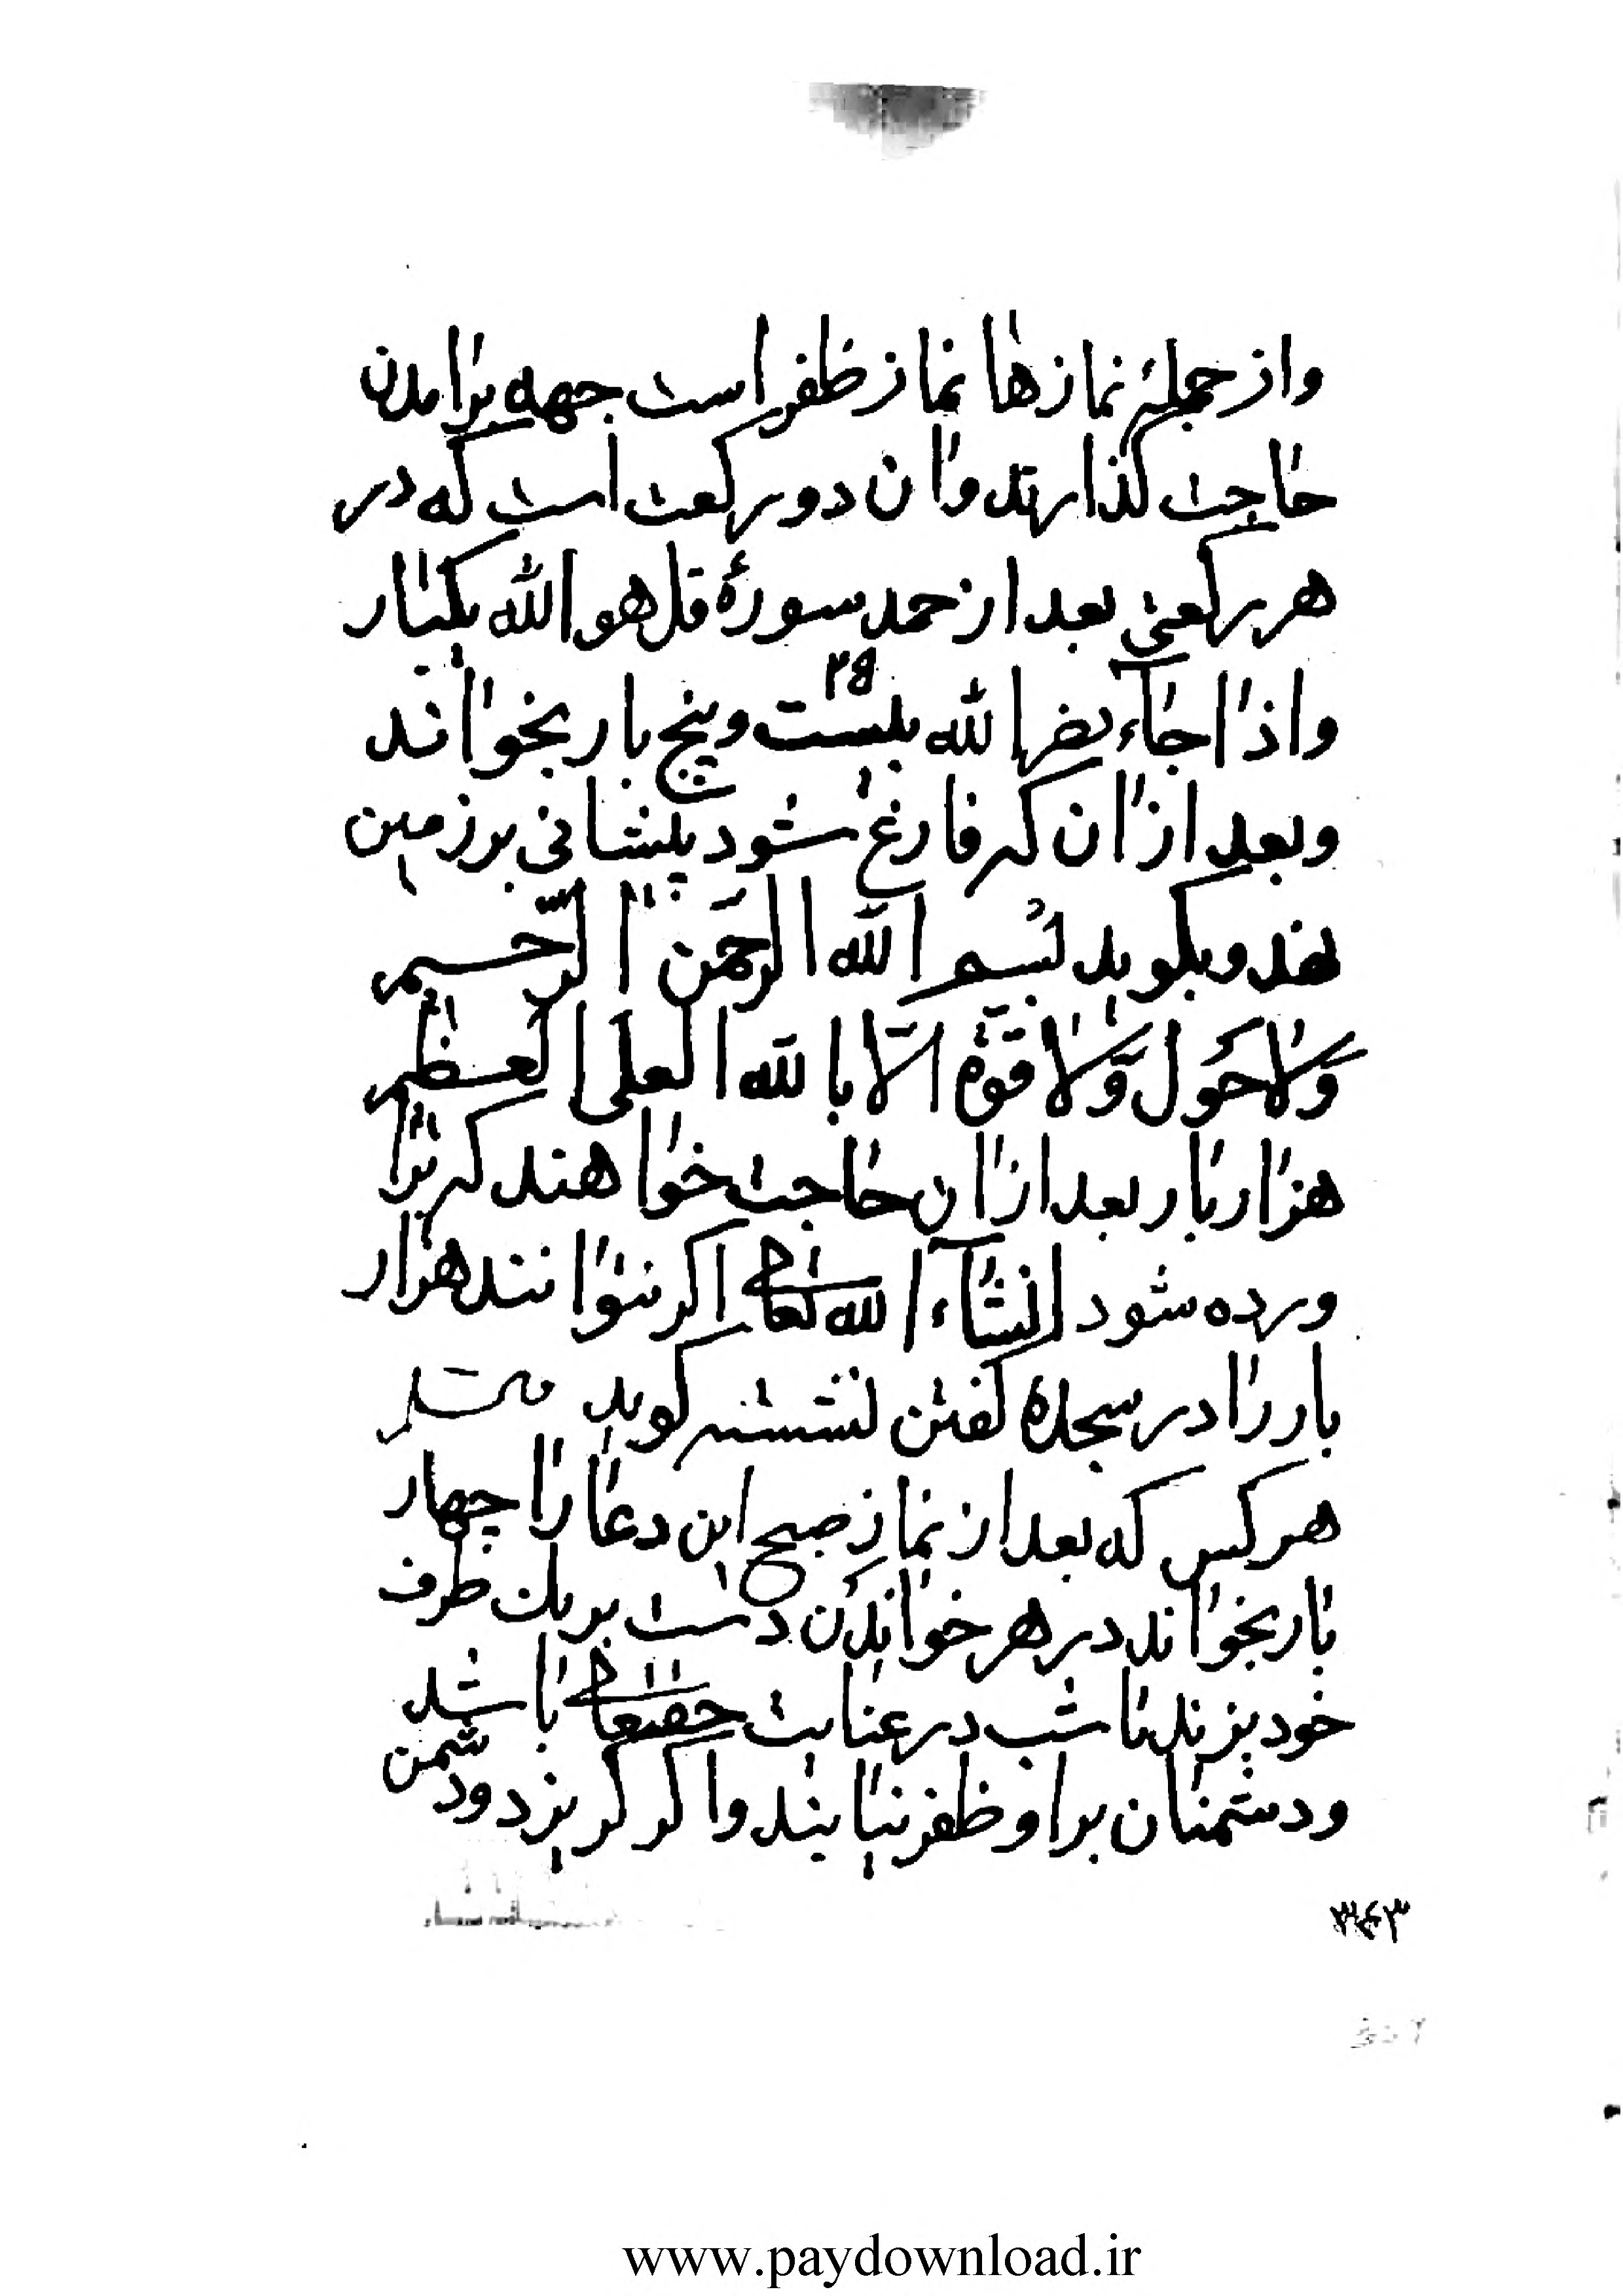 واز جملهٔ نمازها نماز ظفر است جهه برامدن
حاجت کذارند وان دو رکعت است که در
هر رکعتی بعد از حمد سورهٔ قل هو الله یکبار
واذا جاء نصر الله بیست وپنج بار بخواند
۲۵
وبعد ازان که فارغ شود پیشانی بر زمین
نهد وبکوید بسم الله الرحمن الرحیم
وَلا حَول وَلا قوة الّا بالله العلی العظیم
هزار بار بعد ازان حاجت خواهند که برا
ورده شود انشآء الله تعالی اکر نتوانند هزار
بار را در سجده کفتن نشسته کوید
هر کس که بعد از نماز صبح این دعا را چهار
بار بخواند در هر خواندن دست بر یک طرف
خود بزند تا شب در عنایت حقتعالی باشد
ودشمنان بر او ظفر نیابند واکر کریزد ودشمن
www.paydownload.ir